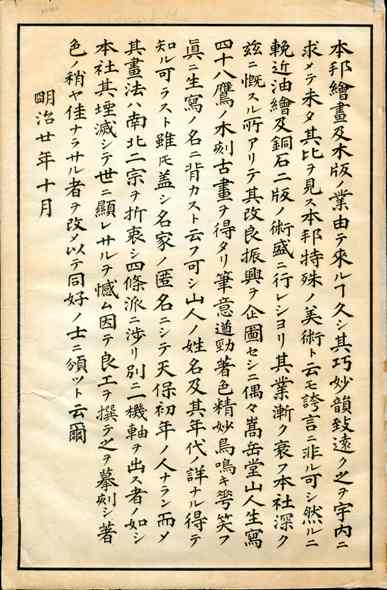 本邦繪畫及木版ノ業由テ來ルヿ久シ其巧妙韻致遠ク之ヲ宇内ニ
求メテ未タ其比ヲ見ス本邦特殊ノ美術ト云モ誇言ニ非ル可シ然ルニ
輓近油繪及銅石二版ノ術盛ニ行レシヨリ其業漸ク衰フ本社深ク
玆ニ慨スル所アリテ其改良振興ヲ企圖セシニ偶々嵩岳堂山人生寫
四十八鷹ノ木刻古畫ヲ得タリ筆意遒勁著色精妙鳥鳴キ咢笑フ
眞ニ生寫ノ名ニ背カスト云フ可シ山人ノ姓名及其年代ノ詳ナル得テ
知ル可ラスト雖𪜈蓋シ名家ノ匿名ニシテ天保初年ノ人ナラン而メ
其畫法ハ南北二宗ヲ折衷シ四條派ニ渉リ別ニ一機軸ヲ出ス者ノ如シ
本社其堙滅シテ世ニ顯レサルヲ憾ム因テ良工ヲ撰テ之ヲ摹刻シ著
色ノ稍ヤ佳ナラサル者ヲ改メ以テ同好ノ士ニ頒ツト云爾
明治廿年十月